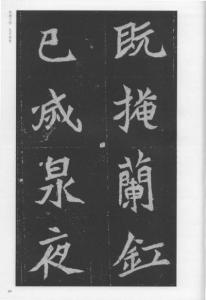 既掩蘭釭
已戚泉夜